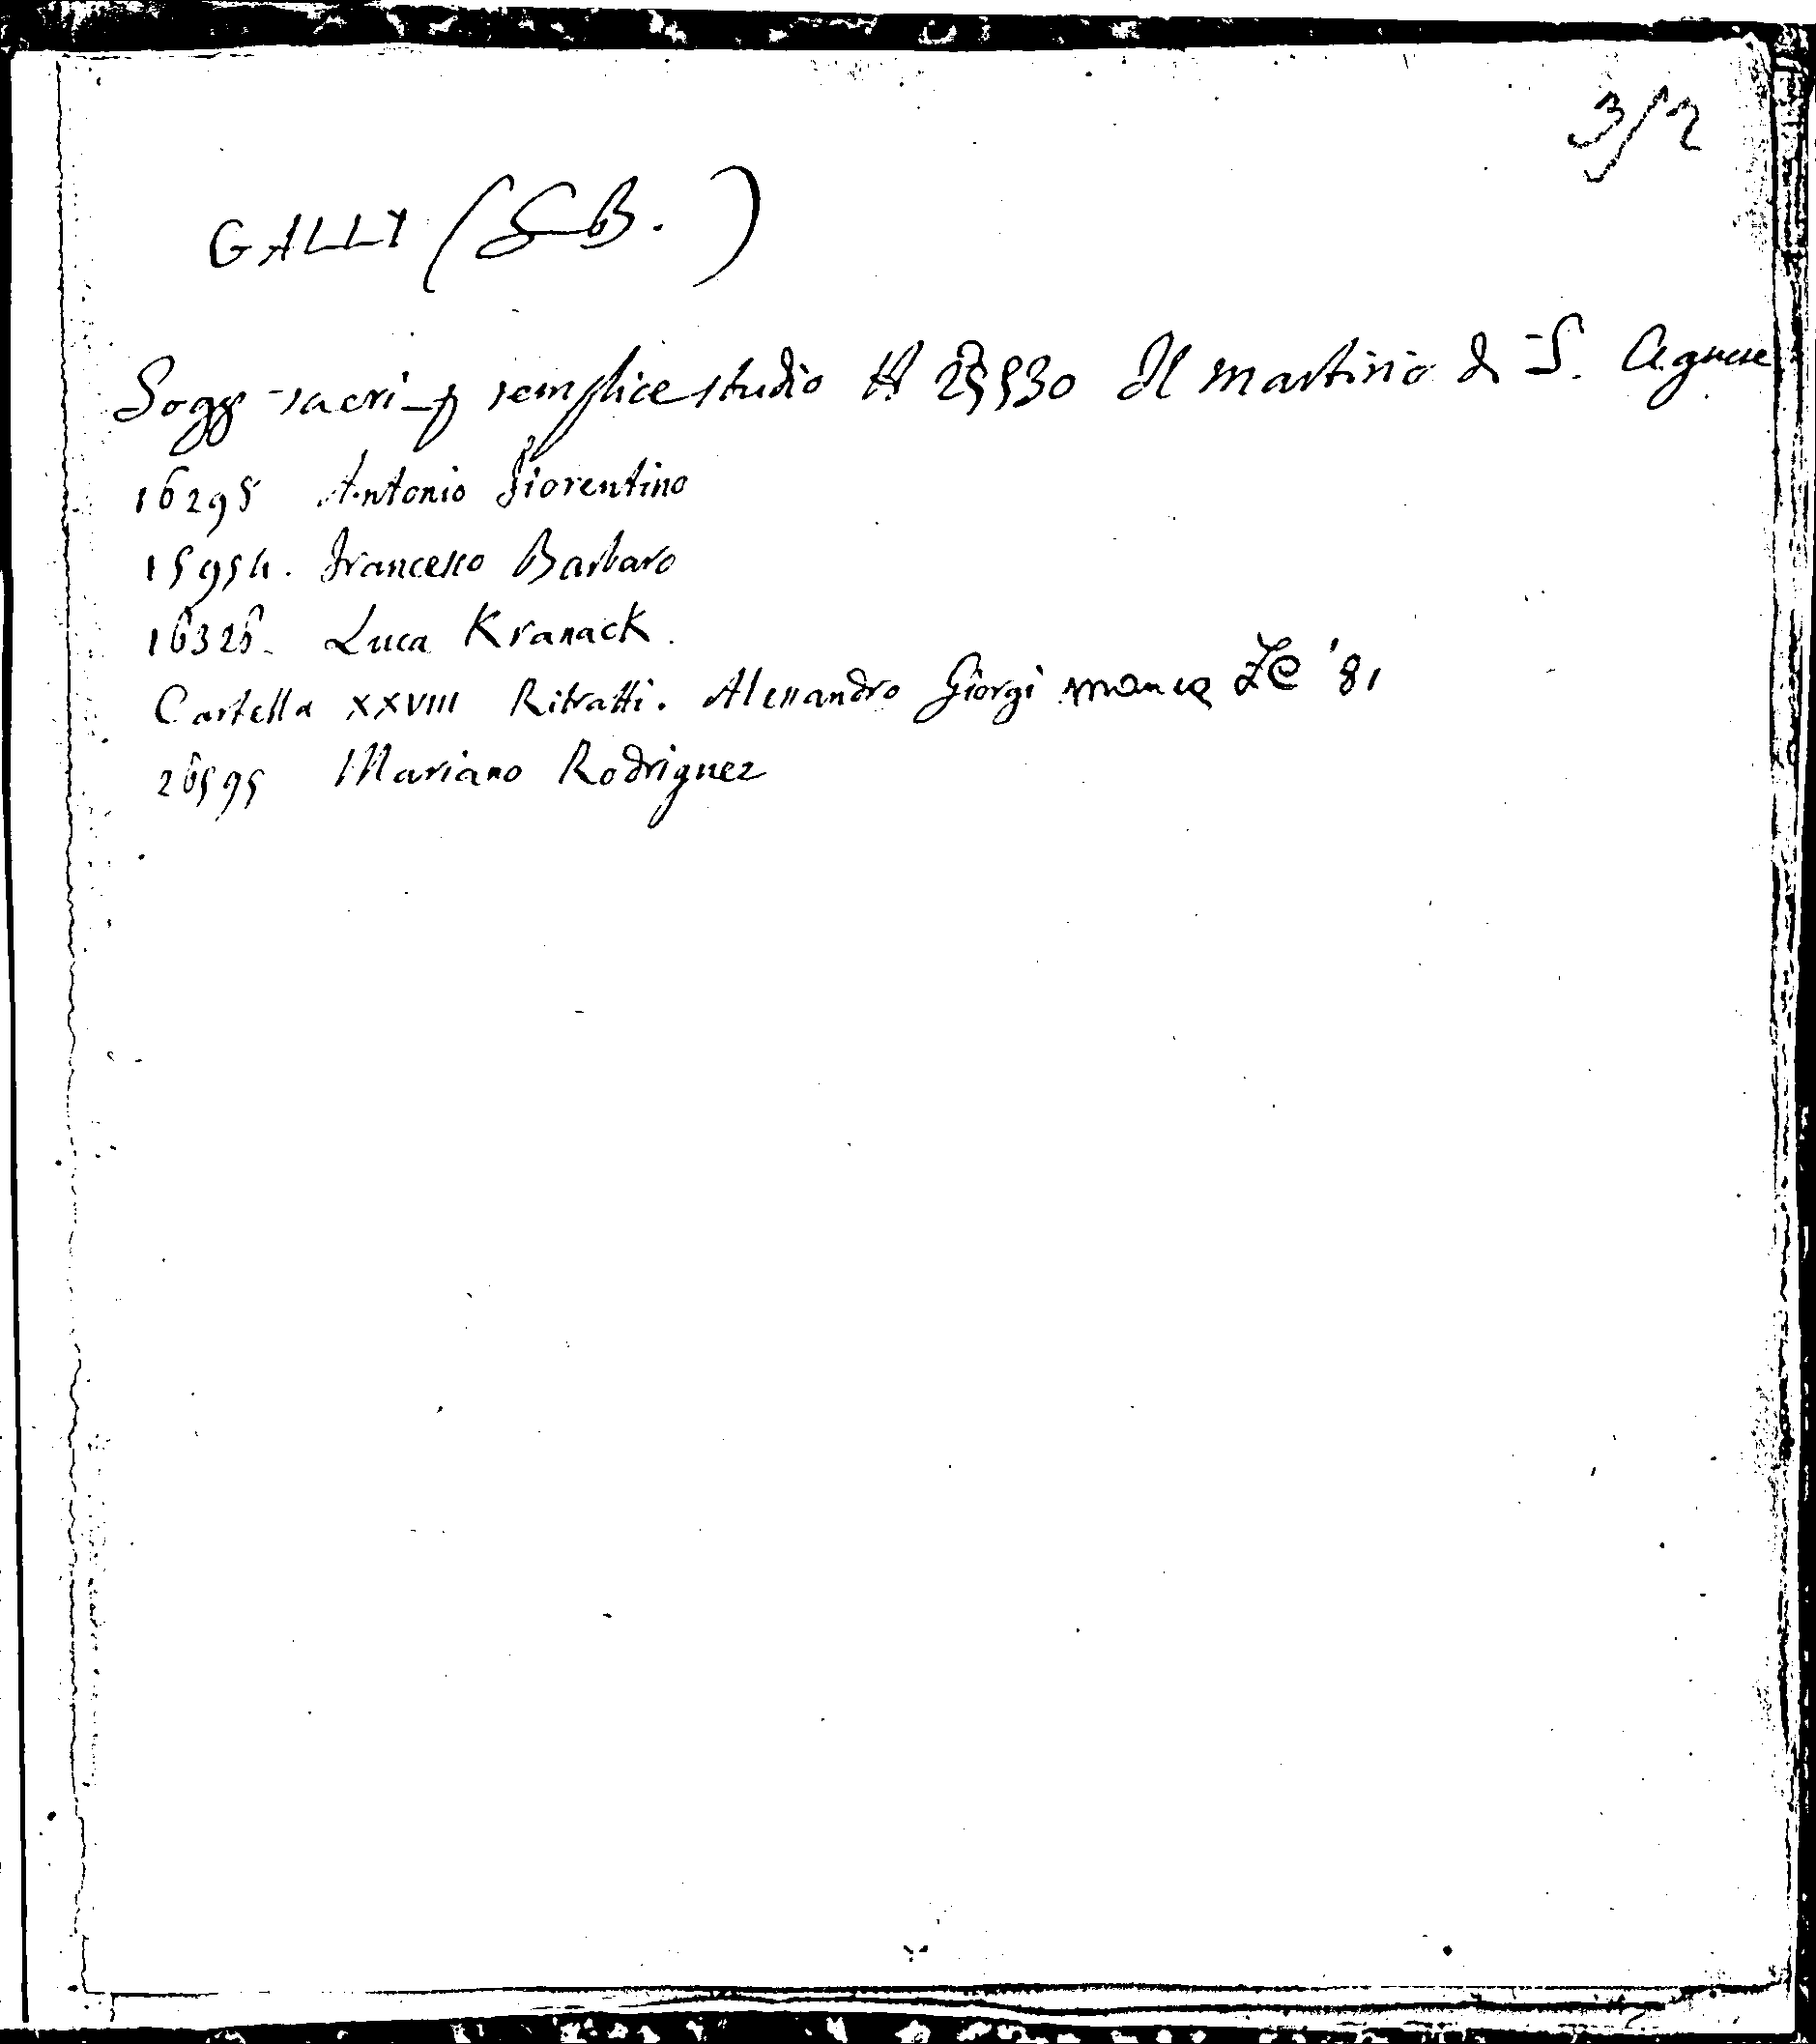 3/2
GALLY (G B.)
Sogg sacri p semplice studio H 25530 Il martirio di S. Agnese
16295 Antonio Fiorentino
15954. Francesco Barbaro
16326. Luca Kranack.
Cartella XXVIII Ritratti. Alessandro Giorgi manca '81
26595 Mariano Rodriguez